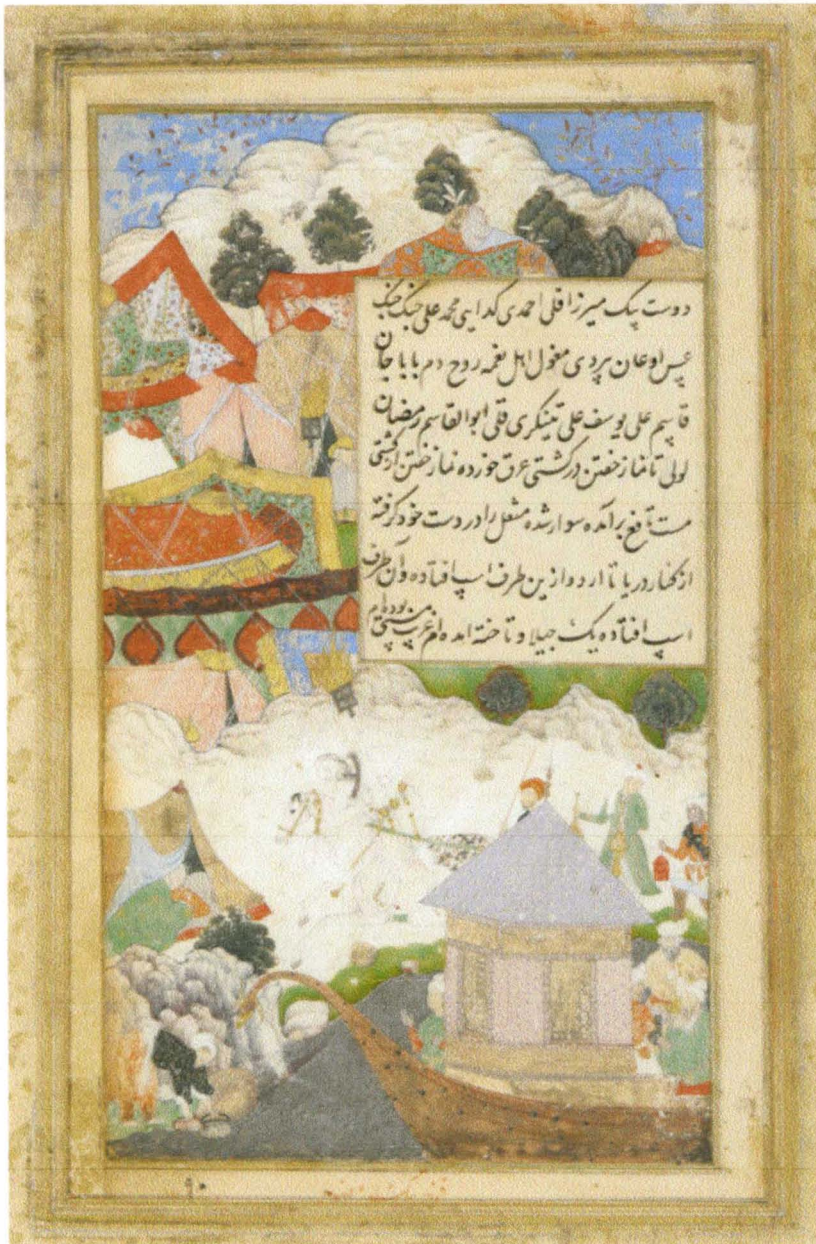 دوست بیک میرزا قلی احمدی کدایی محمد علی جنک جنک
عسس اوغان بردی مغول اهل نغمه روح دم بابا جان
قاسم علی یوسف علی تینکری قلی ابو القاسم رمضان
لولی تا نماز خفتن در کشتی عرق خورده نماز خفتن از کشتی
مست تافغ برآمده سوار شده مشعل را در دست خود گرفته
از کنار دریا تا اردو ازین طرف اسپ افتاده و آن طرف
اسپ افتاده یک جیلاو تاخته امده ام غریب مستی بوده ام
۹۰